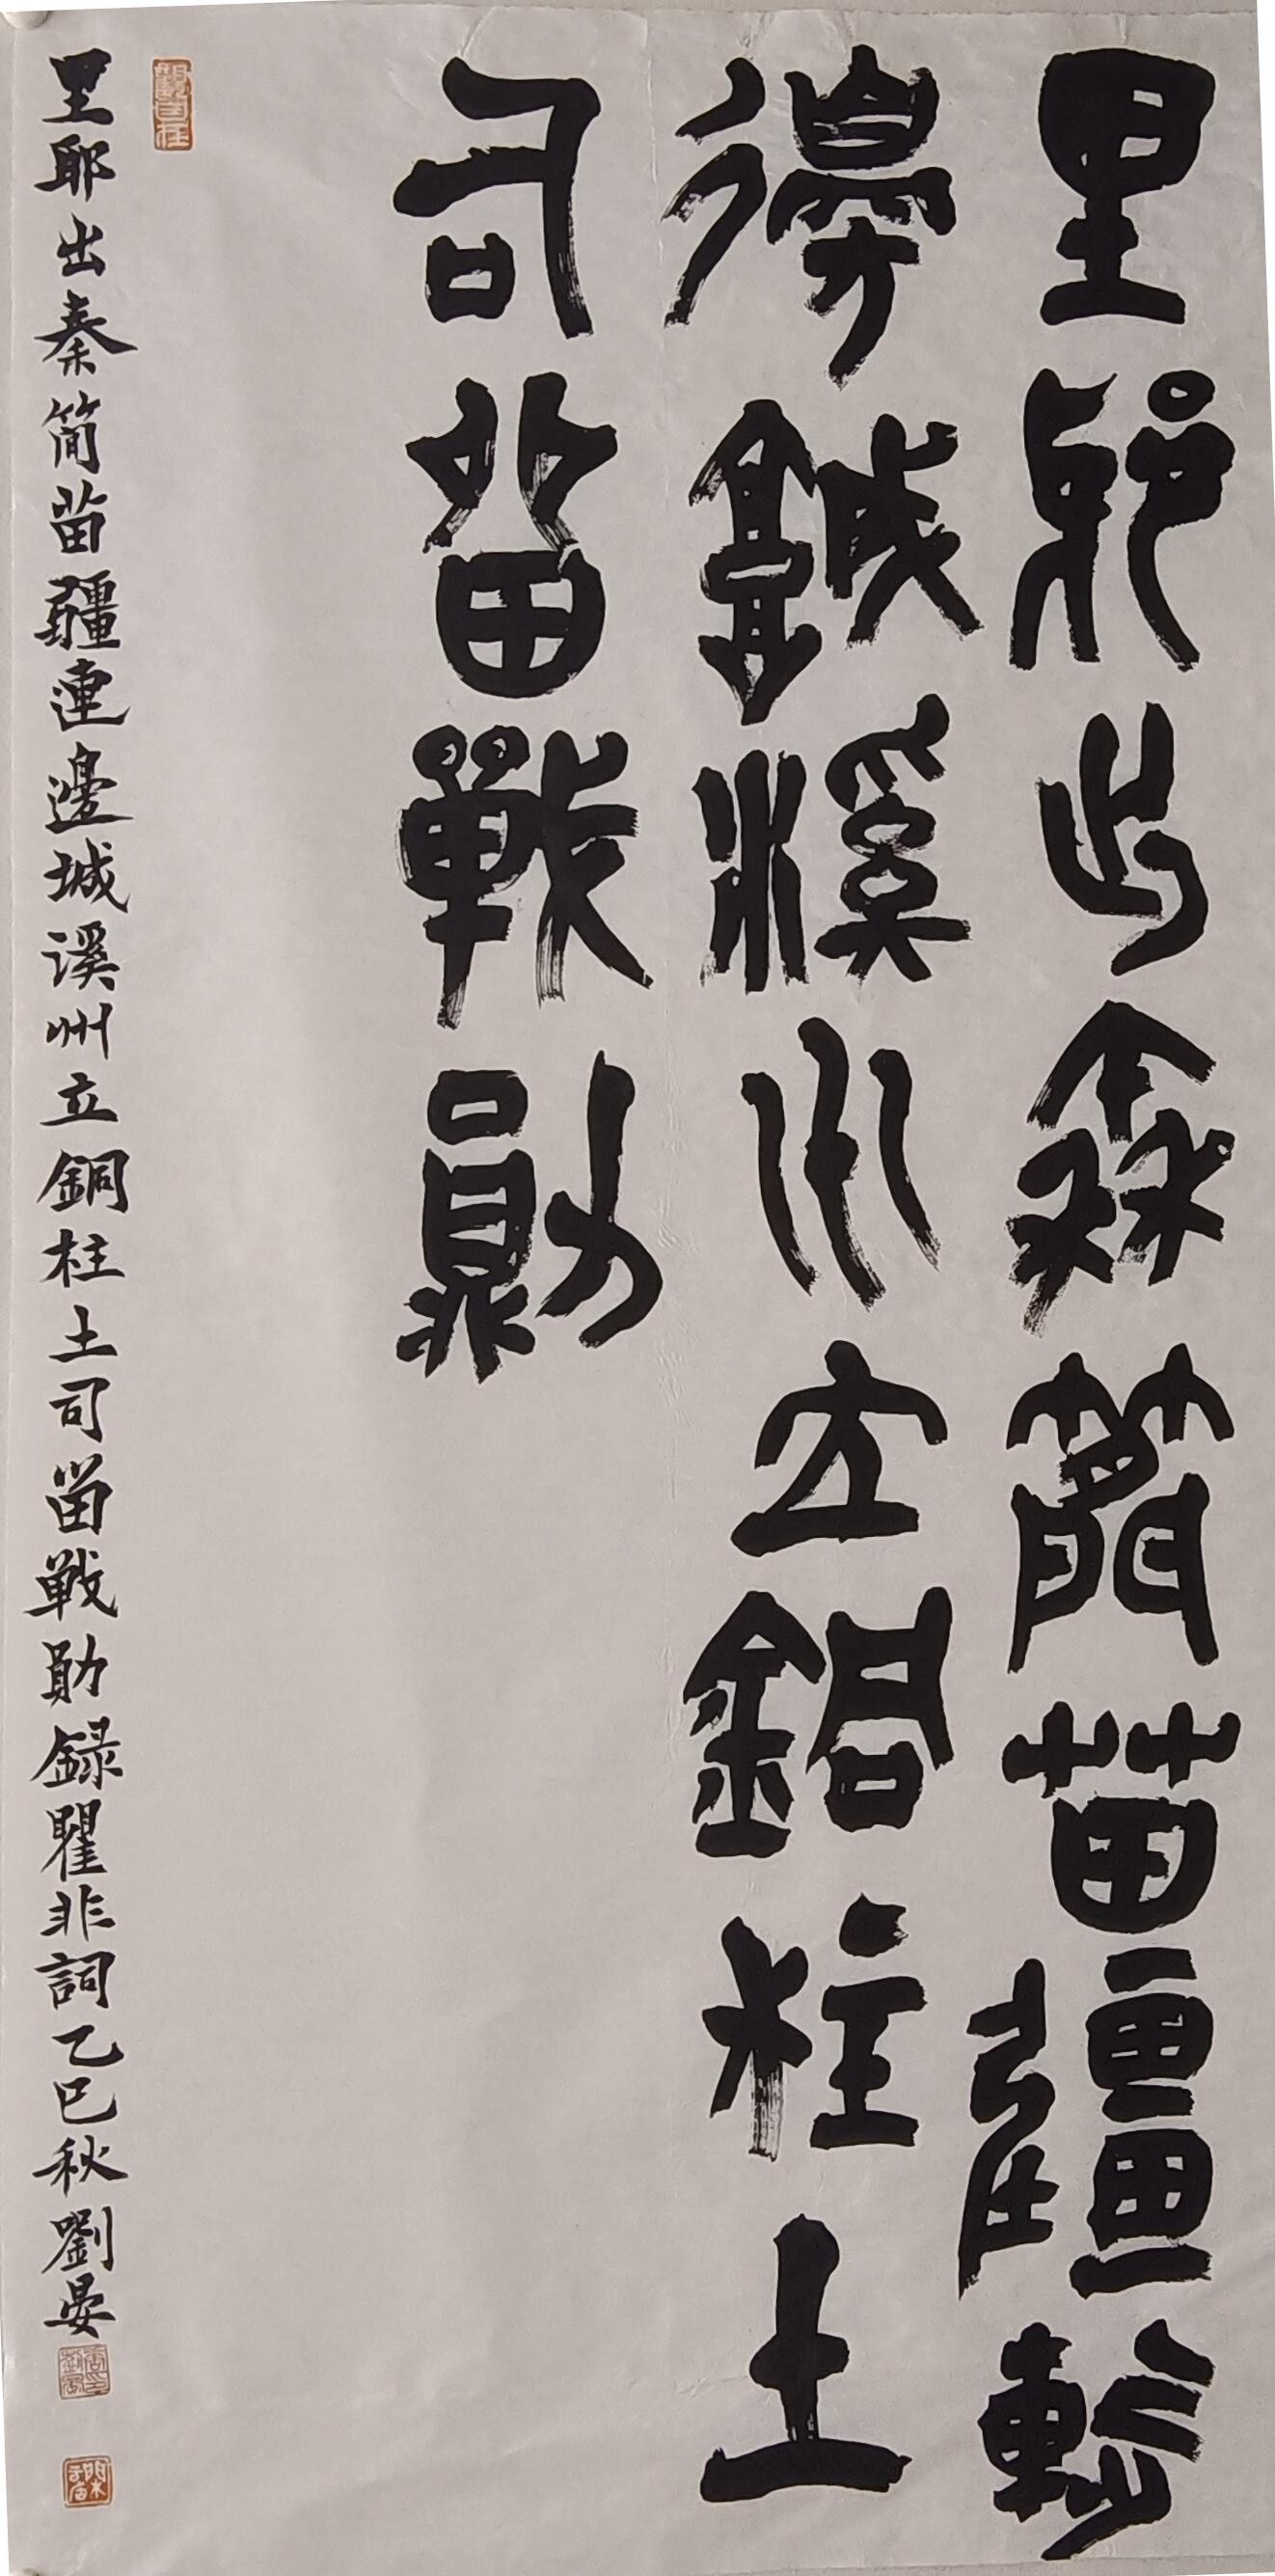 里耶出秦簡苗疆連
邊城溪州立銅柱土
司留戰勛
里耶出秦簡苗疆連邊城溪州立銅柱土司留戰勛録瞿非詞乙巳秋劉晏